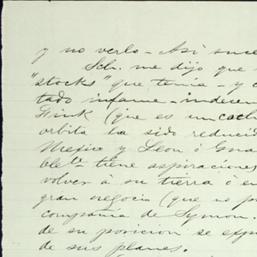 y no verlo - Así suce
Sch. me dijo que
"stocks" que tenia - y
tado infame - indecen
Wink (que es un cach
orbita ha sido reducid
Mexico y Leon ó Gua
ble te tiene aspiraciones
volver á su tierra ó e
gran negocio (que no p
compañia de Symon.
de su posicion se exp
de sus planes.